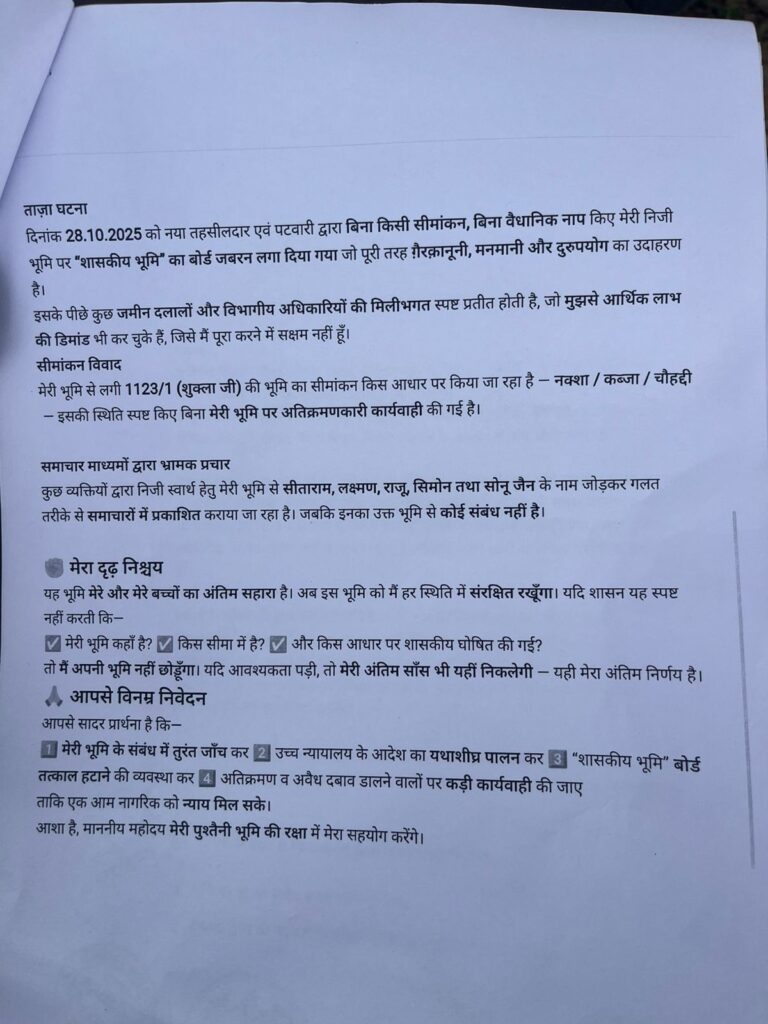 ताज़ा घटना
दिनांक 28.10.2025 को नया तहसीलदार एवं पटवारी द्वारा बिना किसी सीमांकन, बिना वैधानिक नाप किए मेरी निजी
भूमि पर “शासकीय भूमि” का बोर्ड जबरन लगा दिया गया जो पूरी तरह ग़ैरक़ानूनी, मनमानी और दुरुपयोग का उदाहरण
है।
इसके पीछे कुछ जमीन दलालों और विभागीय अधिकारियों की मिलीभगत स्पष्ट प्रतीत होती है, जो मुझसे आर्थिक लाभ
की डिमांड भी कर चुके हैं, जिसे मैं पूरा करने में सक्षम नहीं हूँ।
सीमांकन विवाद
मेरी भूमि से लगी 1123/1 (शुक्ला जी) की भूमि का सीमांकन किस आधार पर किया जा रहा है — नक्शा / कब्जा / चौहद्दी
— इसकी स्थिति स्पष्ट किए बिना मेरी भूमि पर अतिक्रमणकारी कार्यवाही की गई है।
समाचार माध्यमों द्वारा भ्रामक प्रचार
कुछ व्यक्तियों द्वारा निजी स्वार्थ हेतु मेरी भूमि से सीताराम, लक्ष्मण, राजू, सिमोन तथा सोनू जैन के नाम जोड़कर गलत
तरीके से समाचारों में प्रकाशित कराया जा रहा है। जबकि इनका उक्त भूमि से कोई संबंध नहीं है।
✊ मेरा दृढ़ निश्चय
यह भूमि मेरे और मेरे बच्चों का अंतिम सहारा है। अब इस भूमि को मैं हर स्थिति में संरक्षित रखूँगा। यदि शासन यह स्पष्ट
नहीं करती कि—
☑ मेरी भूमि कहाँ है? ☑ किस सीमा में है? ☑ और किस आधार पर शासकीय घोषित की गई?
तो मैं अपनी भूमि नहीं छोड़ूँगा। यदि आवश्यकता पड़ी, तो मेरी अंतिम साँस भी यहीं निकलेगी — यही मेरा अंतिम निर्णय है।
🙏 आपसे विनम्र निवेदन
आपसे सादर प्रार्थना है कि—
1️⃣ मेरी भूमि के संबंध में तुरंत जाँच कर 2️⃣ उच्च न्यायालय के आदेश का यथाशीघ्र पालन कर 3️⃣ “शासकीय भूमि” बोर्ड
तत्काल हटाने की व्यवस्था कर 4️⃣ अतिक्रमण व अवैध दबाव डालने वालों पर कड़ी कार्यवाही की जाए
ताकि एक आम नागरिक को न्याय मिल सके।
आशा है, माननीय महोदय मेरी पुश्तैनी भूमि की रक्षा में मेरा सहयोग करेंगे।